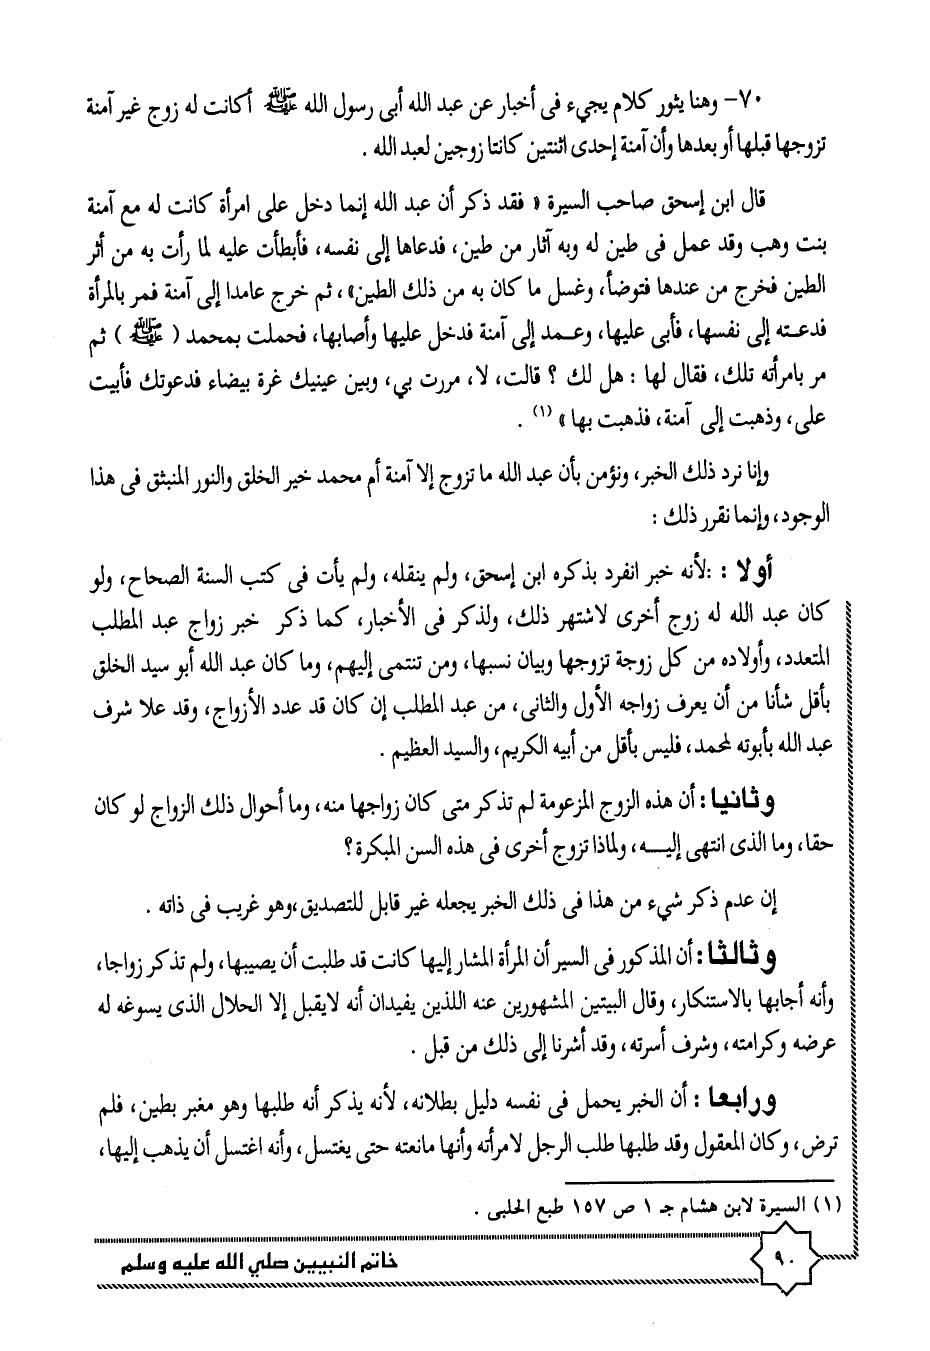 ٧٠- وهنا يثور كلام يجيء فى أخبار عن عبد الله أبى رسول الله ﷺ أكانت له زوج غير آمنة
تزوجها قبلها أو بعدها وأن آمنة إحدى اثنتين كانتا زوجين لعبد الله .
قال ابن إسحق صاحب السيرة « فقد ذكر أن عبد الله إنما دخل على امرأة كانت له مع آمنة
بنت وهب وقد عمل فى طين له وبه آثار من طين، فدعاها إلى نفسه، فأبطأت عليه لما رأت به من أثر
الطين فخرج من عندها فتوضأ، وغسل ما كان به من ذلك الطين»، ثم خرج عامدا إلى آمنة فمر بالمرأة
فدعته إلى نفسها، فأبى عليها، وعمد إلى آمنة فدخل عليها وأصابها، فحملت بمحمد ( ﷺ ) ثم
مر بامرأته تلك، فقال لها : هل لك ؟ قالت، لا، مررت بي، وبين عينيك غرة بيضاء فدعوتك فأبيت
على، وذهبت إلى آمنة، فذهبت بها » (١) .
وإنا نرد ذلك الخبر، ونؤمن بأن عبد الله ما تزوج إلا آمنة أم محمد خير الخلق والنور المنبثق فى هذا
الوجود، وإنما نقرر ذلك :
أولا : :لأنه خبر انفرد بذكره ابن إسحق، ولم ينقله، ولم يأت فى كتب السنة الصحاح، ولو
كان عبد الله له زوج أخرى لاشتهر ذلك، ولذكر فى الأخبار، كما ذكر خبر زواج عبد المطلب
المتعدد، وأولاده من كل زوجة تزوجها وبيان نسبها، ومن تنتمى إليهم، وما كان عبد الله أبو سيد الخلق
بأقل شأنا من أن يعرف زواجه الأول والثانى، من عبد المطلب إن كان قد عدد الأزواج، وقد علا شرف
عبد الله بأبوته لمحمد، فليس بأقل من أبيه الكريم، والسيد العظيم .
وثانيا : أن هذه الزوج المزعومة لم تذكر متى كان زواجها منه، وما أحوال ذلك الزواج لو كان
حقا، وما الذى انتهى إليــه، ولماذا تزوج أخرى فى هذه السن المبكرة؟
إن عدم ذكر شيء من هذا فى ذلك الخبر يجعله غير قابل للتصديق،وهو غريب فى ذاته .
وثالثا : أن المذكور فى السير أن المرأة المشار إليها كانت قد طلبت أن يصيبها، ولم تذكر زواجا،
وأنه أجابها بالاستنكار، وقال البيتين المشهورين عنه اللذين يفيدان أنه لايقبل إلا الحلال الذى يسوغه له
عرضه وكرامته، وشرف أسرته، وقد أشرنا إلى ذلك من قبل .
ورابعا : أن الخبر يحمل فى نفسه دليل بطلانه، لأنه يذكر أنه طلبها وهو مغبر بطين، فلم
ترض، وكان المعقول وقد طلبها طلب الرجل لامرأته وأنها مانعته حتى يغتسل، وأنه اغتسل أن يذهب إليها،
(١) السيرة لابن هشام جـ ١ ص ١٥٧ طبع الحلبى .
٩٠ خاتم النبيين صلي الله عليه وسلم